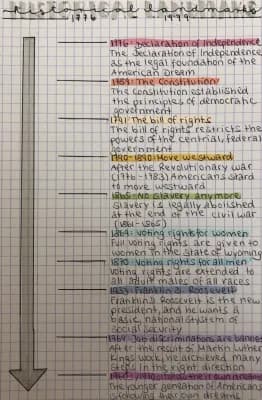 historical landmarks
1776 - 1999
1776: Declaration of Independence
The Declaration of Independence
as the legal foundation of the
American Dream
The Constitution
The Constitution established
the principles of democratic
government
1791: The bill of rights
The bill of rights restricts the
powers of the central, federal
government
- 1890: Move westward
After the Revolutionary war
(1776-1783) Americans start
to move westward
1865: No slavery anymore
Slavery is legally abolished
at the end of the civil war
(1861-1865)
1869: Voting rights for women
Full voting rights are given to
women in the state of Wyoming
1870: Voting rights for all men
Voting rights are extended to
all adult males of all races
Franklin D. Roosevelt
Franklin D. Roosevelt is the new
president, and he wants a
basic, national system of
social security
discriminations are banned
After the result of Martin Luther
Kings work, he archieved many
steps in the right direction
their own
The younger generation of Americans
is following their own dreams